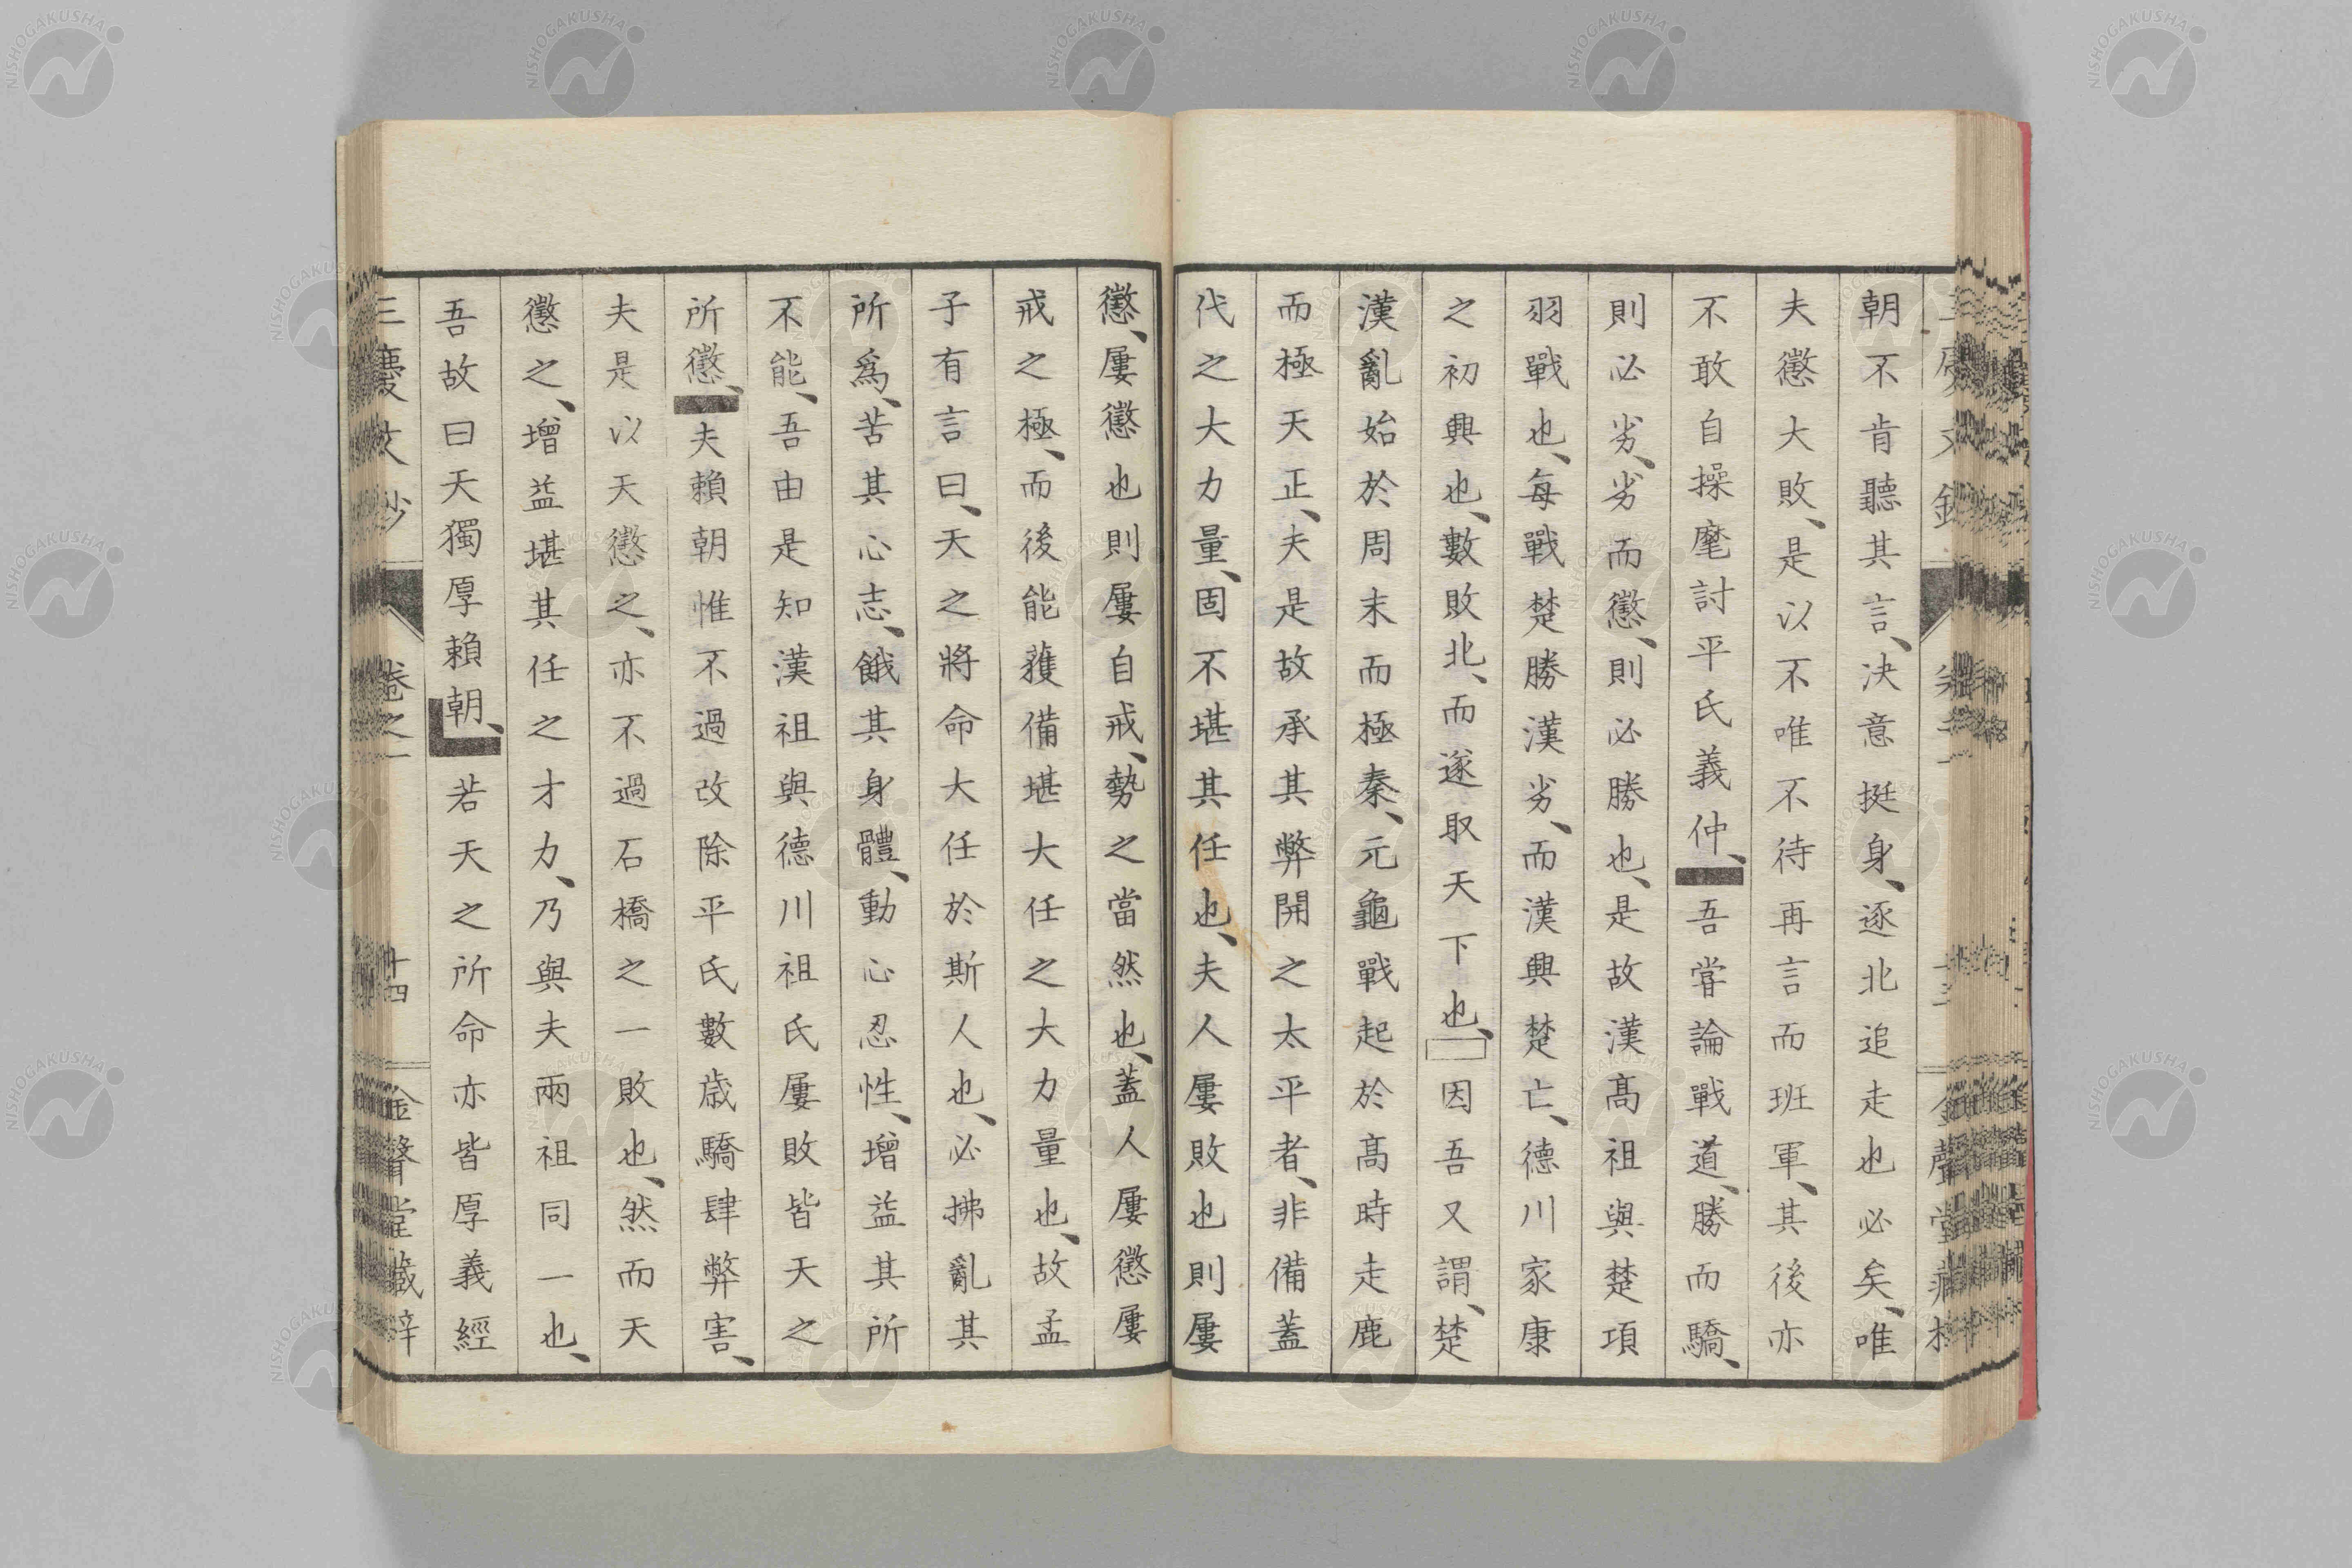 朝不肯聽其言、決意挺身、逐北追走也必矣、唯
夫懲大敗、是以不唯不待再言而班軍、其後亦
不敢自操麾討平氏義仲、吾嘗論戰道、勝而驕、
則必劣、劣而懲、則必勝也、是故漢高祖與楚項
羽戰也、每戰楚勝漢劣、而漢興楚亡、德川家康
之初興也、數敗北、而遂取天下也、因吾又謂、楚
漢亂始於周末而極秦、元龜戰起於高時走鹿
而極天正、夫是故承其弊開之太平者、非備蓋
代之大力量、固不堪其任也、夫人屢敗也則屢
懲、屢懲也則屢自戒、勢之當然也、蓋人屢懲屢
戒之極、而後能獲備堪大任之大力量也、故孟
子有言曰、天之將命大任於斯人也、必拂亂其
所爲、苦其心志、餓其身體、動心忍性、增益其所
不能、吾由是知漢祖與德川祖氏屢敗皆天之
所懲、夫賴朝惟不過改除平氏數歳驕肆弊害、
夫是以天懲之、亦不過石橋之一敗也、然而天
懲之、增益堪其任之才力、乃與夫兩祖同一也、
吾故曰天獨厚賴朝、若天之所命亦皆厚義經
三慶文鈔 卷之一 十四 金聲堂藏梓
NISHOGAKUSHA